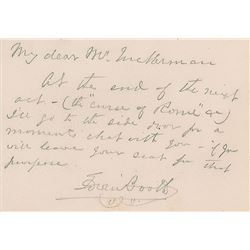 My dear Mr. Tuckerman
At the end of the next
act - (the "curse of Rome" act)
I'll go to the side door for a
moment's chat with you - if you
will leave your seat for that
purpose.
Edwin Booth